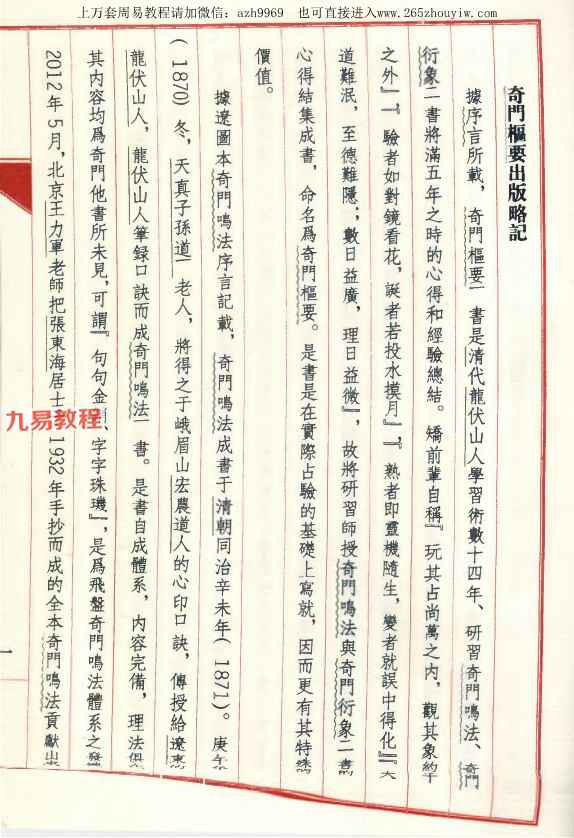 上万套周易教程请加微信：azh9969 也可直接进入www.265zhouyiw.com
奇門樞要出版略記
據序言所載，奇門樞要一書是清代龍伏山人學習術數十四年、研習奇門鳴法、奇門
衍象二書將滿五年之時的心得和經驗總結。矯前輩自稱『玩其占尚萬之内，觀其象約千
之外』，驗者如對鏡看花，誕者若投水摸月』，『熟者即靈機隨生，變者就誤中得化』『
道難泯，至德難隱；數日益廣，理日益微』，故將研習師授奇門鳴法與奇門衍象二書
心得結集成書，命名爲奇門樞要。是書是在實際占驗的基礎上寫就，因而更有其特
價值。
據遼圖本奇門鳴法序言記載，奇門鳴法成書于清朝同治辛未年(1871)。庚午
(1870)冬，天真子孫道一老人，將得之于峨眉山宏農道人的心印口訣，傳授給遼
龍伏山人，龍伏山人筆録口訣而成奇門鳴法一書。是書自成體系，内容完備，理法
其内容均爲奇門他書所未見，可謂『句句金、字字珠璣』，是爲飛盤奇門鳴法體系之
2012年5月，北京王力軍老師把張東海居士1932年手抄而成的全本奇門鳴法貢獻出
九易教程
一